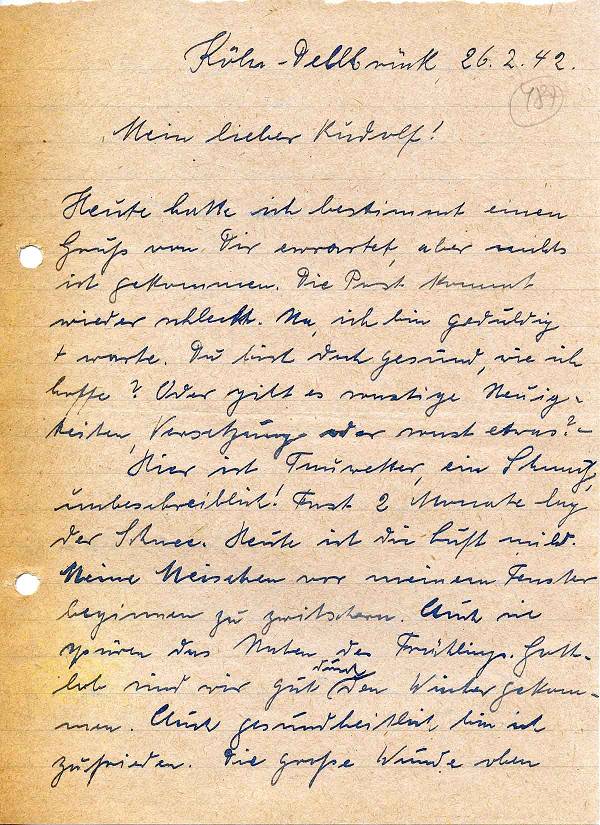 Köln-Dellbrück, 26.2.42.
487
Mein lieber Rudolf!
Heute hatte ich bestimmt einen
Gruß von Dir erwartet, aber nichts
ist gekommen. Die Post kommt
wieder schlecht. Na, ich bin geduldig
+ warte. Du bist doch gesund, wie ich
hoffe? Oder gibt es sonstige Neuig-
keiten, Versetzung oder sonst etwas?-
Hier ist Tauwetter, ein Schmutz,
unbeschreiblich! Fast 2 Monate lag
der Schnee. Heute ist die Luft mild.
Meine Meischen vor meinem Fenster
beginnen zu zwitschern. Auch sie
spüren das Nahen des Frühlings. Gott-
lob sind wir gut durch den Winter gekom-
men. Auch gesundheitlich bin ich
zufrieden. Die große Wunde oben